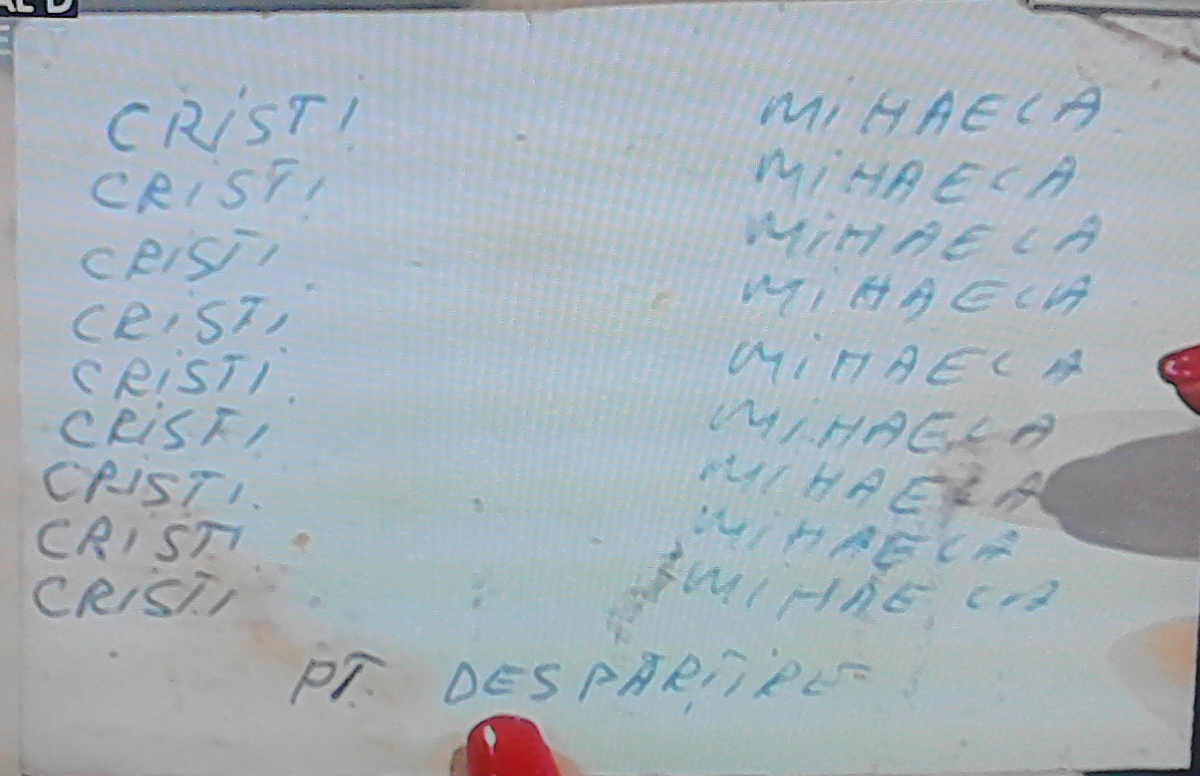 AL D
CRISTI MIHAELA
CRISTI MIHAELA
CRISTI MIHAELA
CRISTI MIHAELA
CRISTI MIHAELA
CRISTI MIHAELA
CRISTI MIHAELA
CRISTI MIHAELA
CRISTI MIHAELA
PT. DESPĂRȚIRE